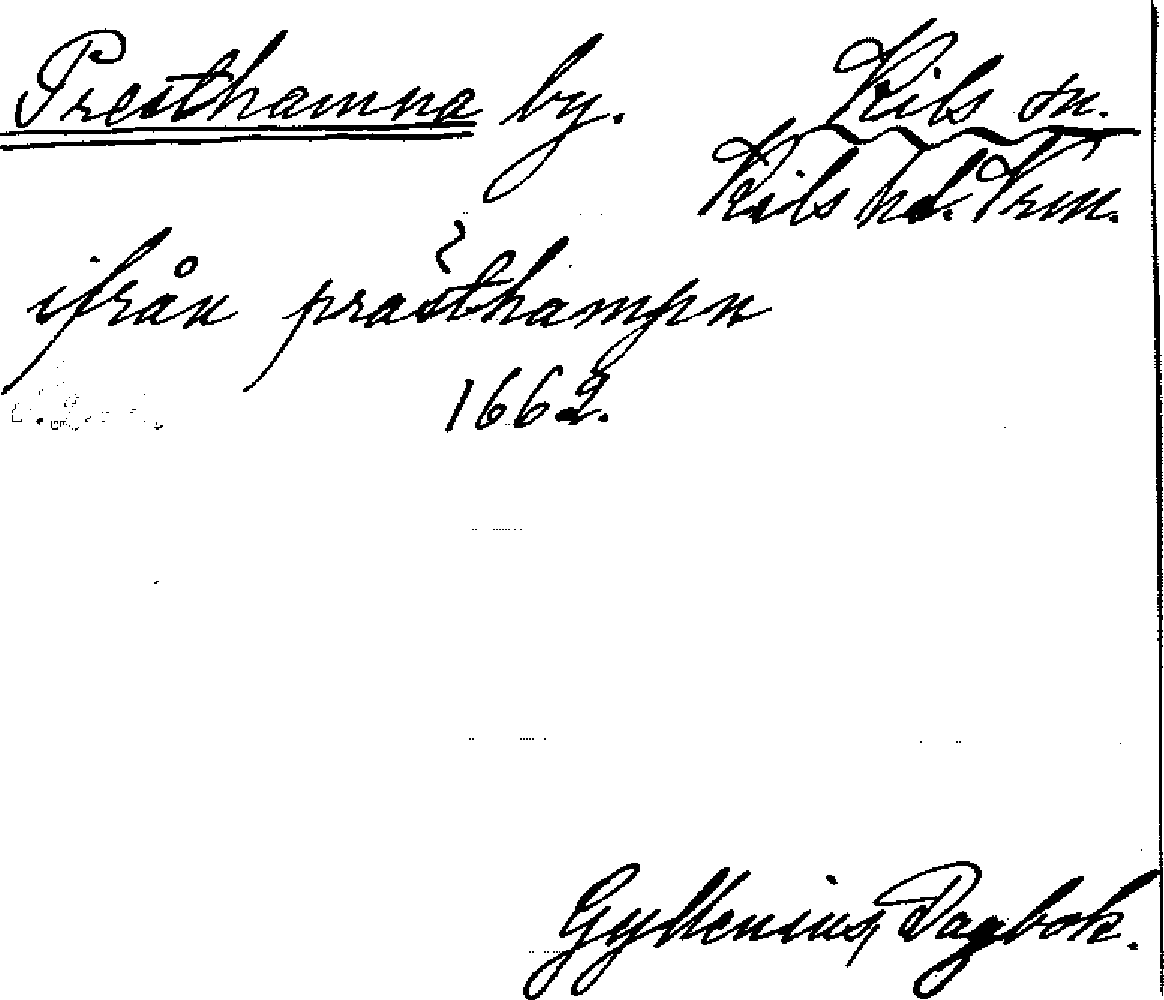 Presthamna by. Kils sn.
Kils hd. Vrm.
ifrån prästhampn
1662.
Gyllenius, Dagbok.